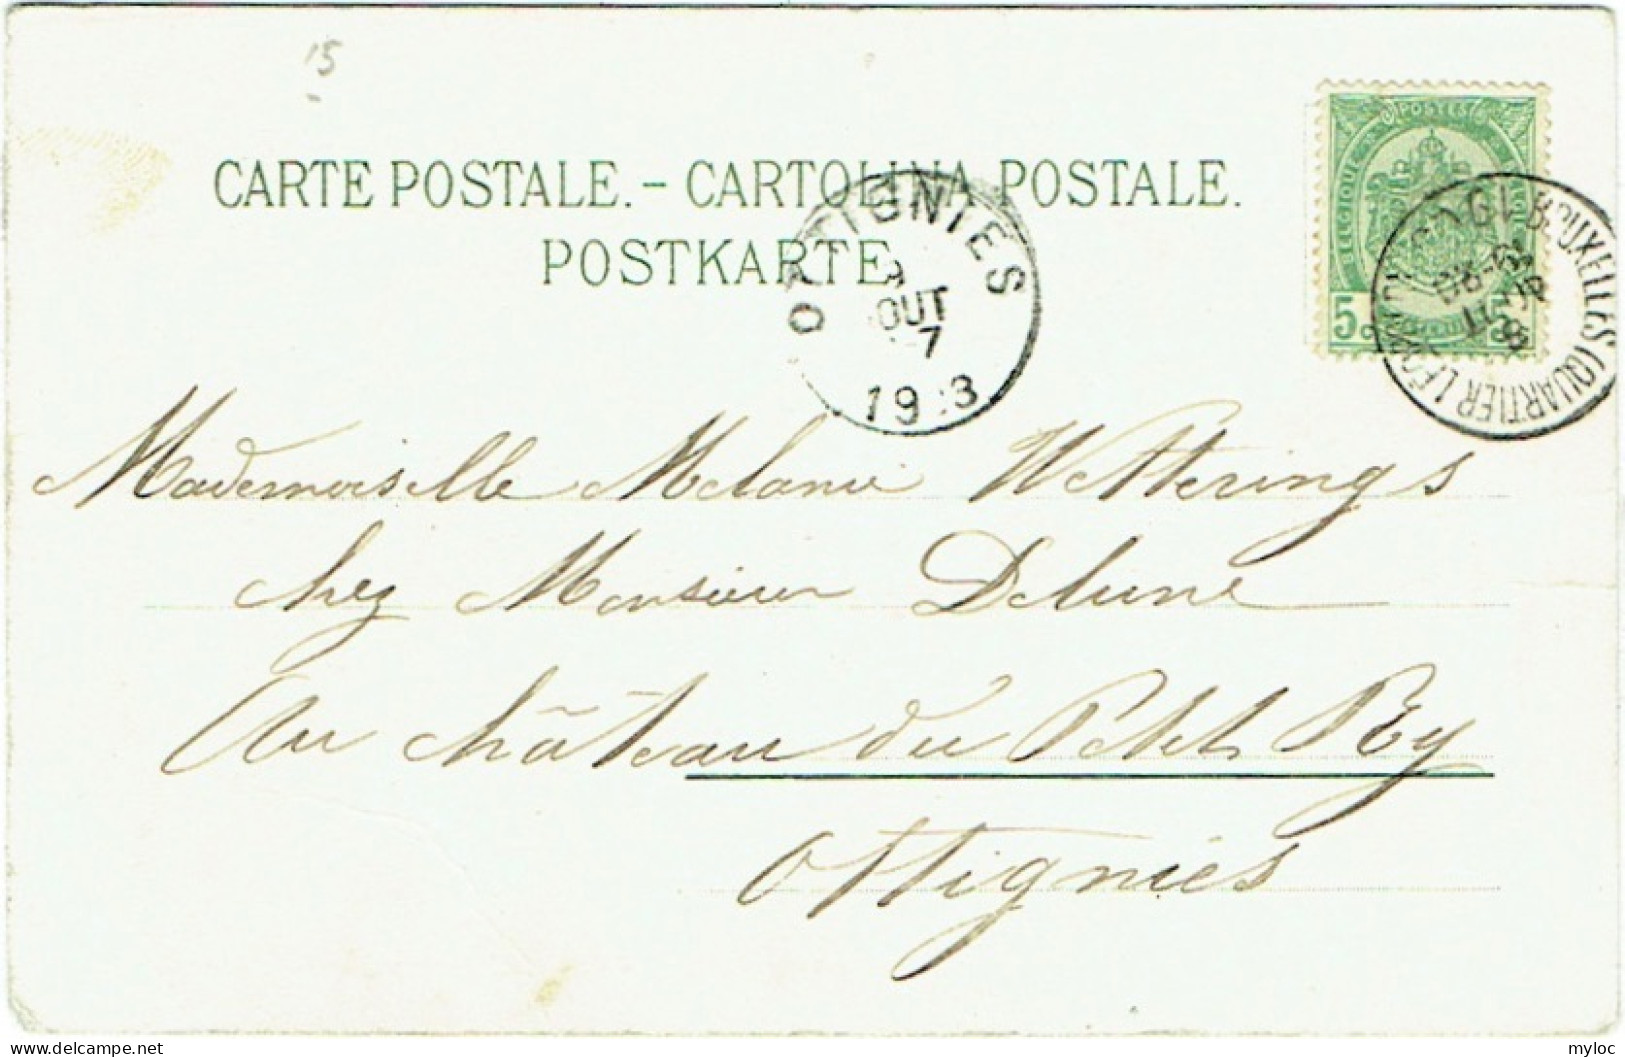 15
CARTE POSTALE. – CARTOLINA POSTALE.
POSTKARTE
POSTES
BELGIQUE
5
OTTIGNIES
OUT
7
19 3
BRUXELLES (QUARTIER LÉOPOLD)
8
AOUT
Mademoiselle Melanie Wetterings
chez Monsieur Delune
Au château du Petit Ry
Ottignies
myloc
delcampe.net